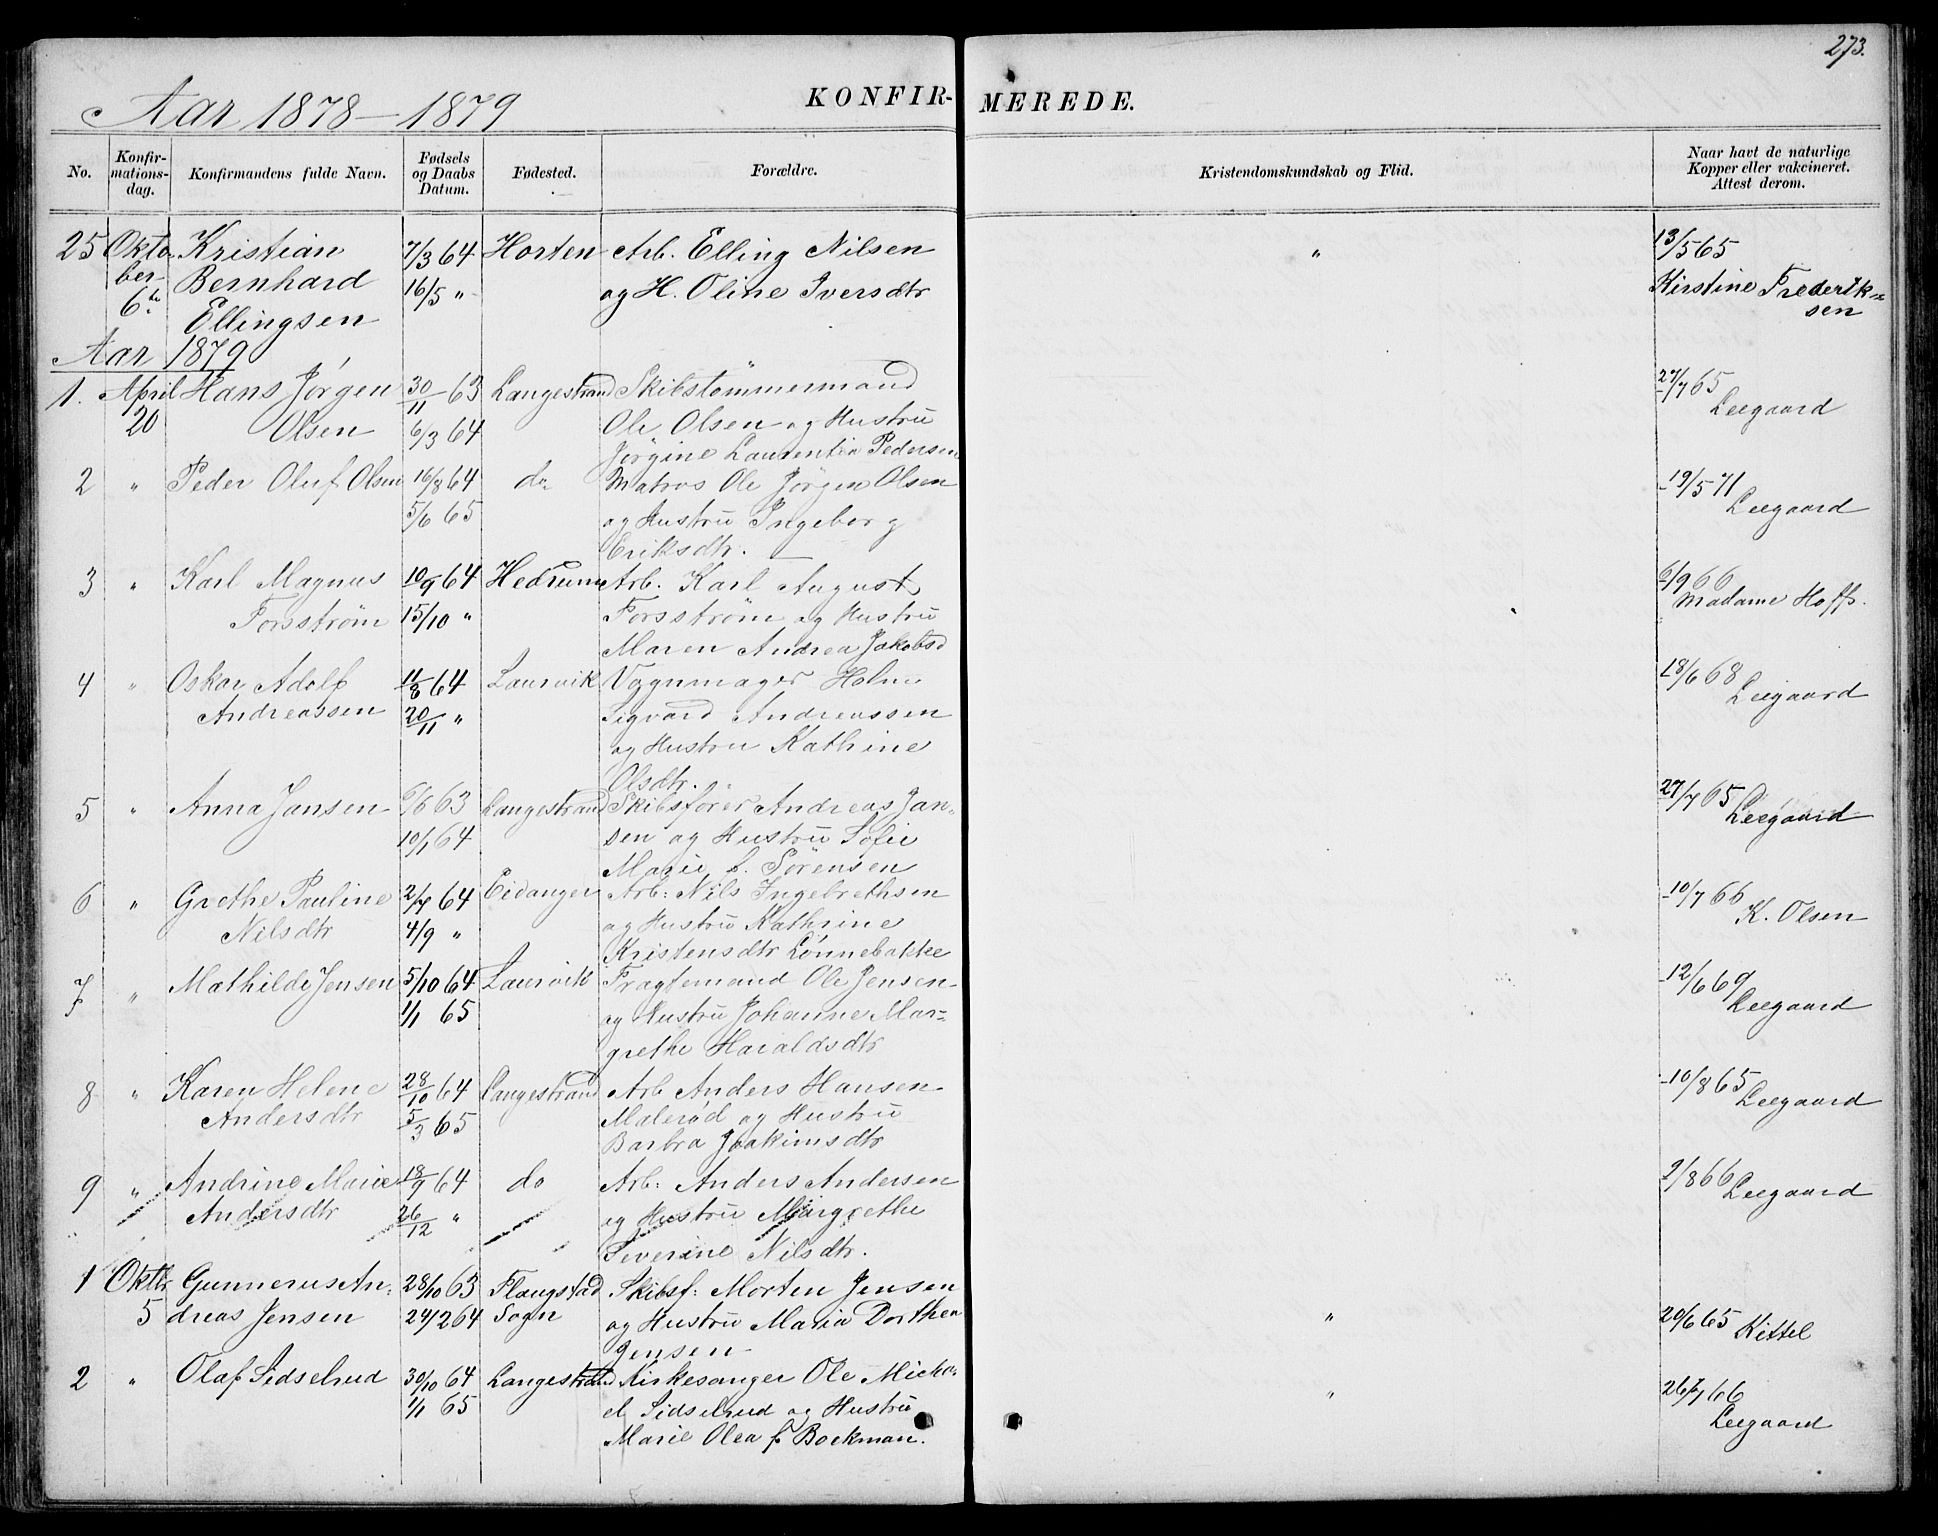 273.
Aar 1878-1879 KONFIR- MEREDE.
No. Konfir-mations-dag. Konfirmandens fulde Navn. Fødsels og Daabs Datum. Fødested. Forældre. Kristendomskundskab og Flid. Naar havt de naturlige Kopper eller vakcineret. Attest derom.
25 Okto- Kristian 7/3 64 Horten Arb. Elling Nilsen " 13/5 65
ber Bernhard 16/5 " og H. Oline Iversdtr Kirstine Frederik=
6te Ellingsen sen
Aar 1879
1. April Hans Jørgen 30/11 63 Langestrand Skibstømmermand 27/7 65
20 Olsen 6/3 64 Ole Olsen og Hustru Leegaard
Jørgine Laurentia Pedersen
2 " Peder Oluf Olsen 16/8 64 do Matros Ole Jørgen Olsen 19/5 71
5/6 65 og Hustru Ingeborg Leegaard
Eriksdtr.
3 " Karl Magnus 10/9 64 Hedrum Arb. Karl August 6/9 66
Forsstrøm 15/10 " Forsstrøm og Hustru Madame Hoff.
Maren Andrea Jakobsd
4 " Oskar Adolf 11/8 64 Laurvik Vognmager Holm 18/6 68
Andreassen 20/11 " Sigvard Andreassen Leegaard
og Hustru Kathine
Olsdtr.
5 " Anna Jansen 6/6 63 Langestrand Skibsfører Andreas Jan= 27/7 65
10/1 64 sen og Hustru Sofie Leegaard
Marie f. Sørensen
6 " Grethe Pauline 2/7 64 Eidanger Arb: Nils Ingebrethsen 10/7 66
Nilsdtr 4/9 " og Hustru Kathrine K. Olsen
Kristensdtr Lønnebakke
7 " Mathilde Jensen 5/10 64 Laurvik Fragtemand Ole Jensen 12/6 69
1/1 65 og Hustru Johanne Mar= Leegaard
grethe Haraldsdtr
8 " Karen Helene 28/10 64 Langestrand Arb Anders Hansen 10/8 65
Andersdtr 5/3 65 Malerød og Hustru Leegaard
Barbra Joakimsdtr
9 " Andrine Marie 18/9 64 do Arb: Anders Andersen 2/8 66
Andersdtr 26/12 " og Hustru Margrethe Leegaard
Severine Nilsdtr.
1 Oktbr Gunnerus An= 28/10 63 Flangstad Skibsf: Morten Jensen
5 dreas Jensen 24/2 64 Sogn og Hustru Maria Dorthea " 20/6 65 Kittel
Jensen
2 " Olaf Sidselrud 30/10 64 Langestrand Kirkesanger Ole Micha= " 26/7 66
1/1 65 el Sidselrud og Hustru Leegaard
Marie Olea f Bockman.